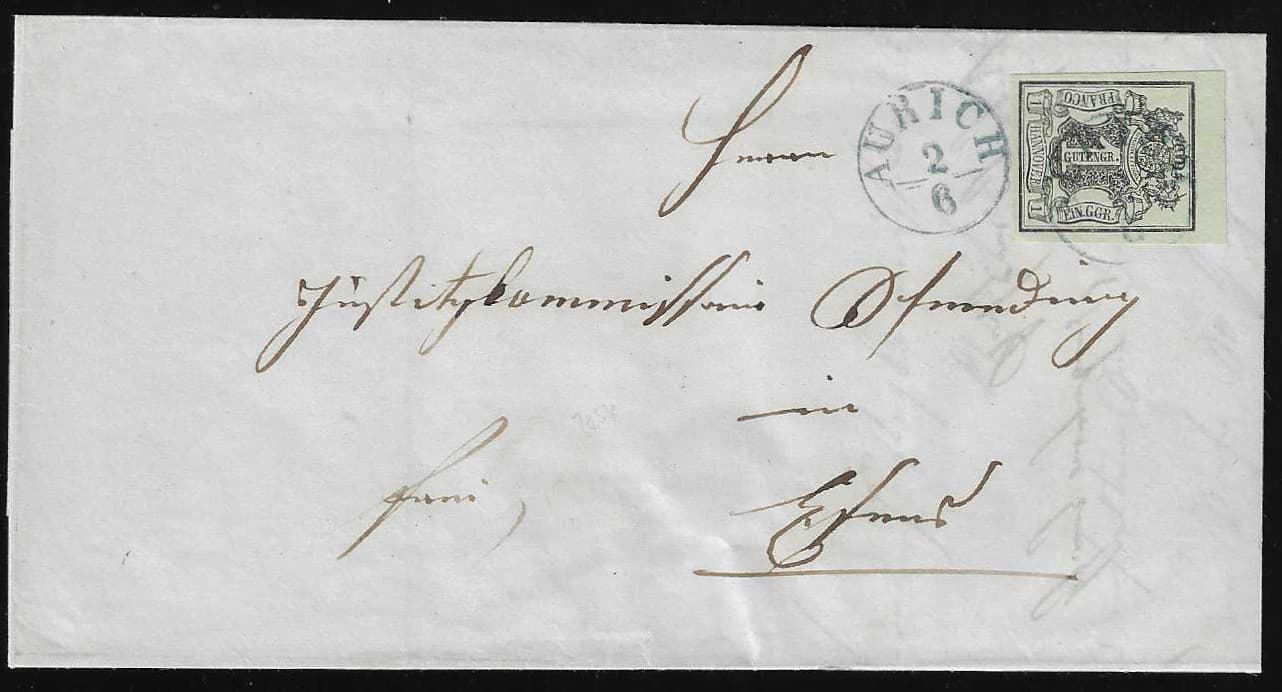 AURICH
2
6
FRANCO
1 HANNOVER 1
1
GUTENGR.
EIN.GGR.
Herrn
Justitzkommissair
in
Esens
frei